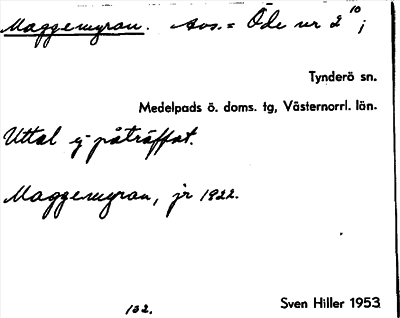 Maggemyran. Avs.= Öde nr 2¹⁰;
Tynderö sn.
Medelpads ö. doms. tg, Västernorrl. län.
Uttal ej påträffat.
Maggemyran, jr 1922.
132.
Sven Hiller 1953